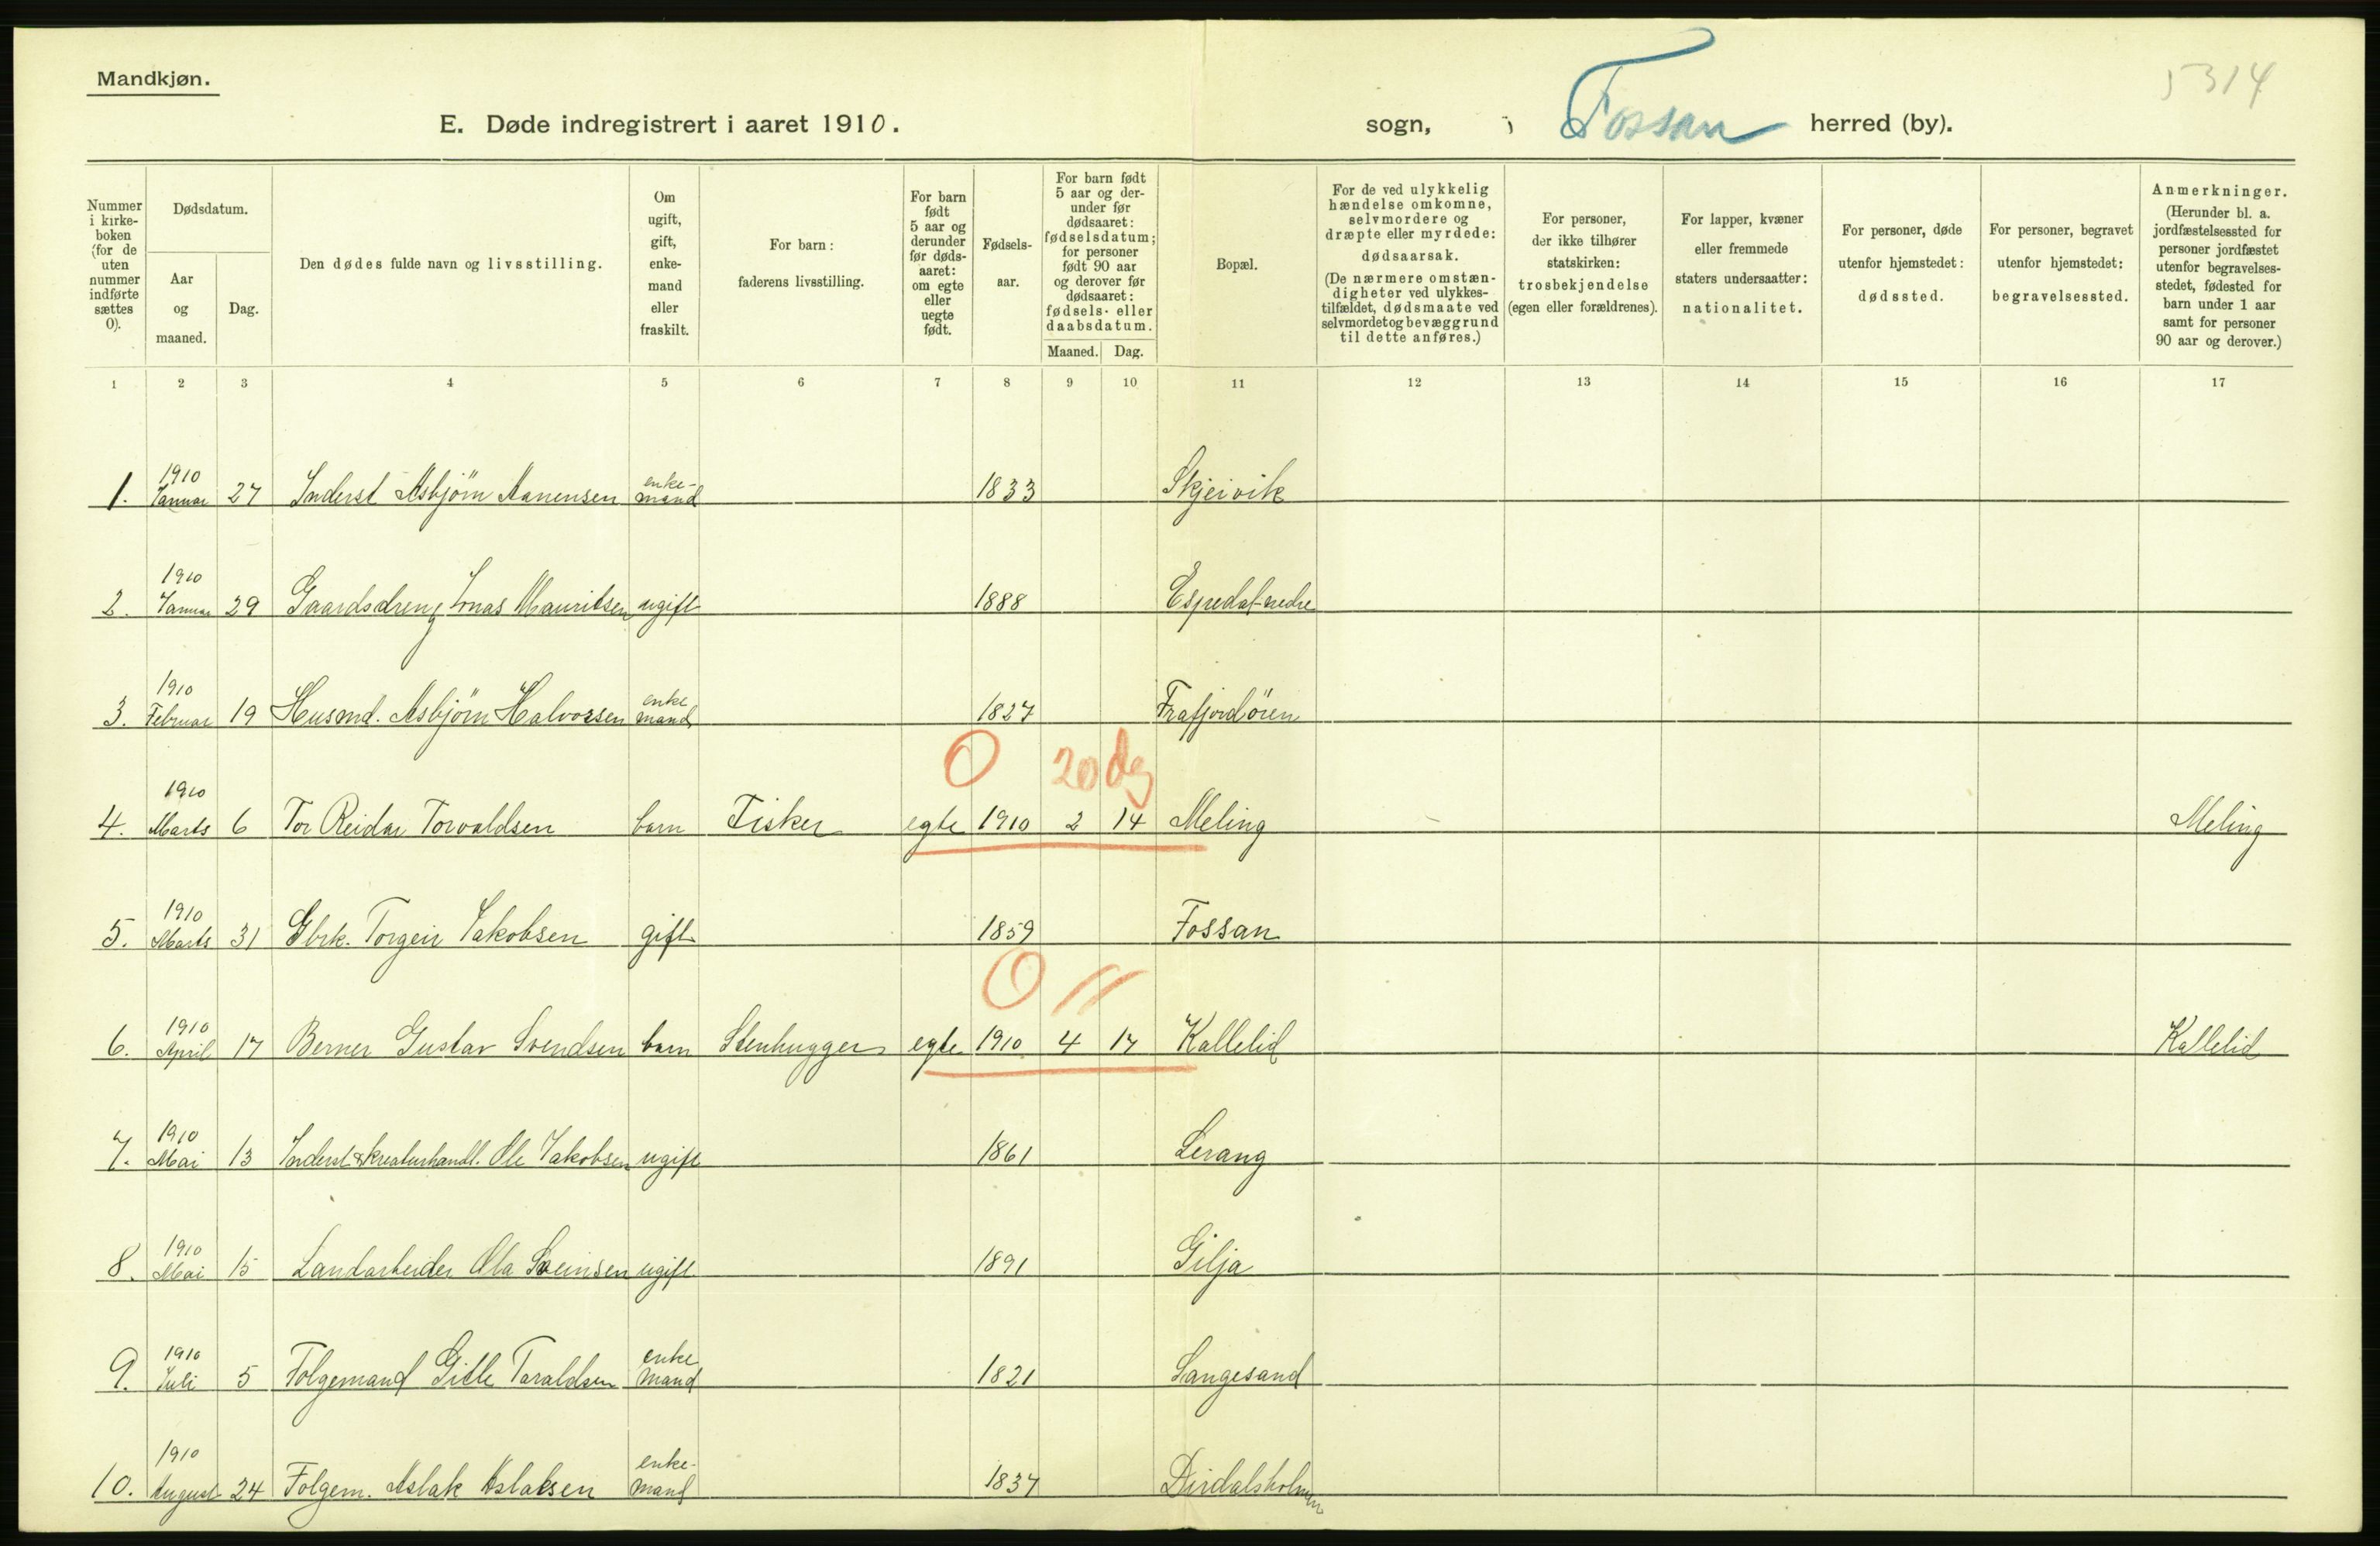 Mandkjøn.
5314
E. Døde indregistrert i aaret 1910.
sogn, i Fossan herred (by).
Nummer i kirke-boken (for de uten nummer indførte sættes 0).
Dødsdatum.
Aar og maaned.
Dag.
Den dødes fulde navn og livsstilling.
Om ugift, gift, enke-mand eller fraskilt.
For barn: faderens livsstilling.
For barn født 5 aar og derunder før døds-aaret: om egte eller uegte født.
Fødsels-aar.
For barn født 5 aar og der-under før dødsaaret: fødselsdatum; for personer født 90 aar og derover før dødsaaret: fødsels- eller daabsdatum.
Maaned. Dag.
Bopæl.
For de ved ulykkelig hændelse omkomne, selvmordere og dræpte eller myrdede: dødsaarsak. (De nærmere omstæn-digheter ved ulykkes-tilfældet, dødsmaate ved selvmord et og bevæggrund til dette anføres.)
For personer, der ikke tilhører statskirken: trosbekjendelse (egen eller forældrenes).
For lapper, kvæner eller fremmede staters undersaatter: nationalitet.
For personer, døde utenfor hjemstedet: dødssted.
For personer, begravet utenfor hjemstedet: begravelsessted.
Anmerkninger. (Herunder bl. a. jordfæstelsessted for personer jordfæstet utenfor begravelses-stedet, fødested for barn under 1 aar samt for personer 90 aar og derover.)
1 2 3 4 5 6 7 8 9 10 11 12 13 14 15 16 17
1. 1910 Januar 27 Inderst Asbjörn Aanensen enke-mand 1833 Skjeivik
2. 1910 Januar 29 Gaardsdreng Jonas Mauritsen ugift 1888 Espedal-nedre
3. 1910 Februar 19 Husmd. Asbjörn Halvorsen enke mand 1827 Frafjordören
0 20 dg
4. 1910 Marts 6 Tor Reidar Torvaldsen barn Fisker egte 1910 2 14 Meling Meling
5. 1910 Marts 31 Gbrk. Torgeir Jakobsen gift 1859 Fossan
0 "
6. 1910 April 17 Berner Gustav Svendsen barn Stenhugger egte 1910 4 17 Kallelid Kallelid
7. 1910 Mai 13 Inderst & kreaturhandl. Ole Jakobsen ugift 1861 Lerang
8. 1910 Mai 15 Landarbeider Ola Sveinsen ugift 1891 Gilja
9. 1910 Juli 5 Folgemand Gitle Taraldsen enke mand 1821 Sangesand
10. 1910 August 24 Folgem. Aslak Aslaksen enke-mand 1837 Dirdalsholmen